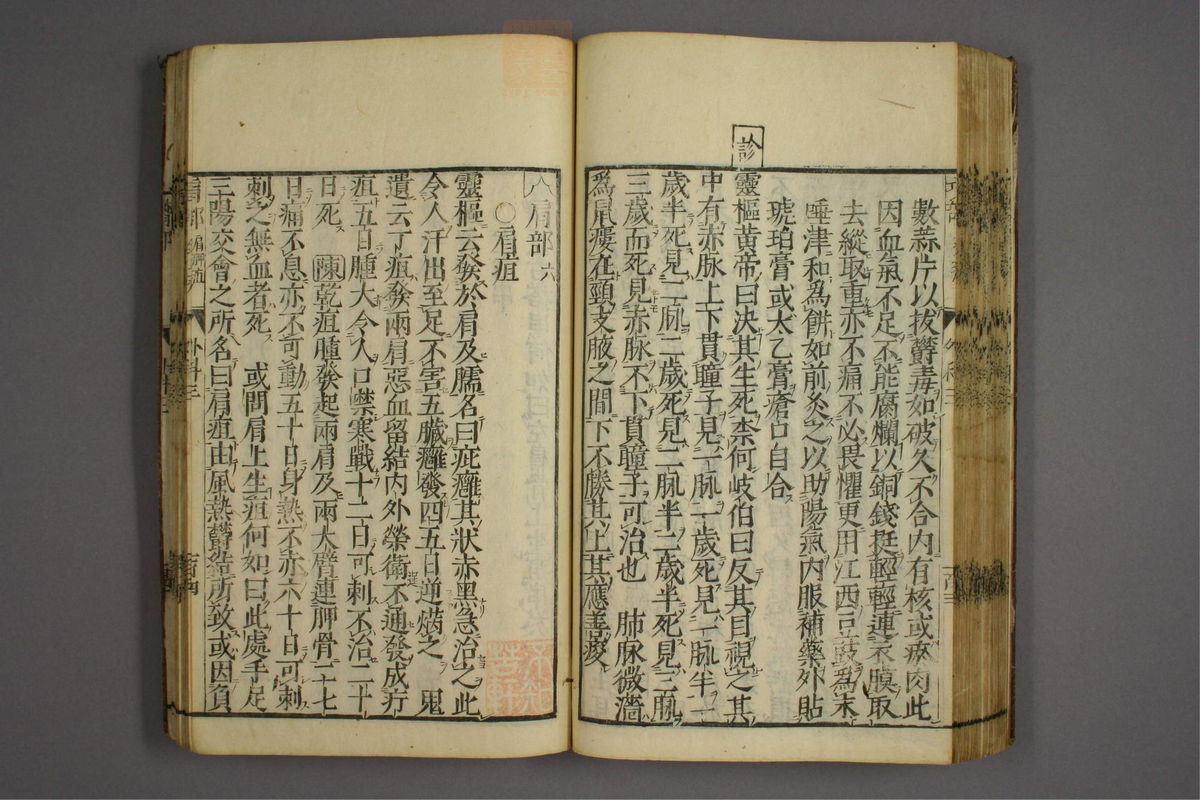 數蒜片以拔欝毒如破久不合内有核或瘀肉此
因血氣不足不能腐爛以銅錢挺輕輕連衣膜取
去縱取重亦不痛不必畏懼更用江西豆豉為末
唾津和為餅如前灸之以助陽氣内服補藥外貼
琥珀膏或太乙膏瘡口自合
診
靈樞黄帝曰決其生死柰何岐伯曰反其目視之其
中有赤脉上下貫瞳子見一脉一歲死見一脉半一
歲半死見二脉二歲死見二脉半二歲半死見三脉
三歲而死見赤脉不下貫瞳子可治也 肺脉微濇
為鼠瘻在頸支腋之間下不勝其上其應善痠
肩部 六
○肩疽
靈樞云發於肩及臑名曰疵癰其狀赤黑急治之此
令人汗出至足不害五臟癰發四五日逆焫之 鬼
遺云丁疽發兩肩惡血留結内外榮衛不通發成疔
疽五日腫大令人口噤寒戰十二日可刺不治二十
日死 陳 乾疽腫發起兩肩及兩大臂連胛骨二十七
日痛不息亦不可動五十日身熱不赤六十日可刺
刺之無血者死 或問肩上生疽何如曰此處手足
三陽交會之所名曰肩疽由風熱欝結所致或因負
外科三